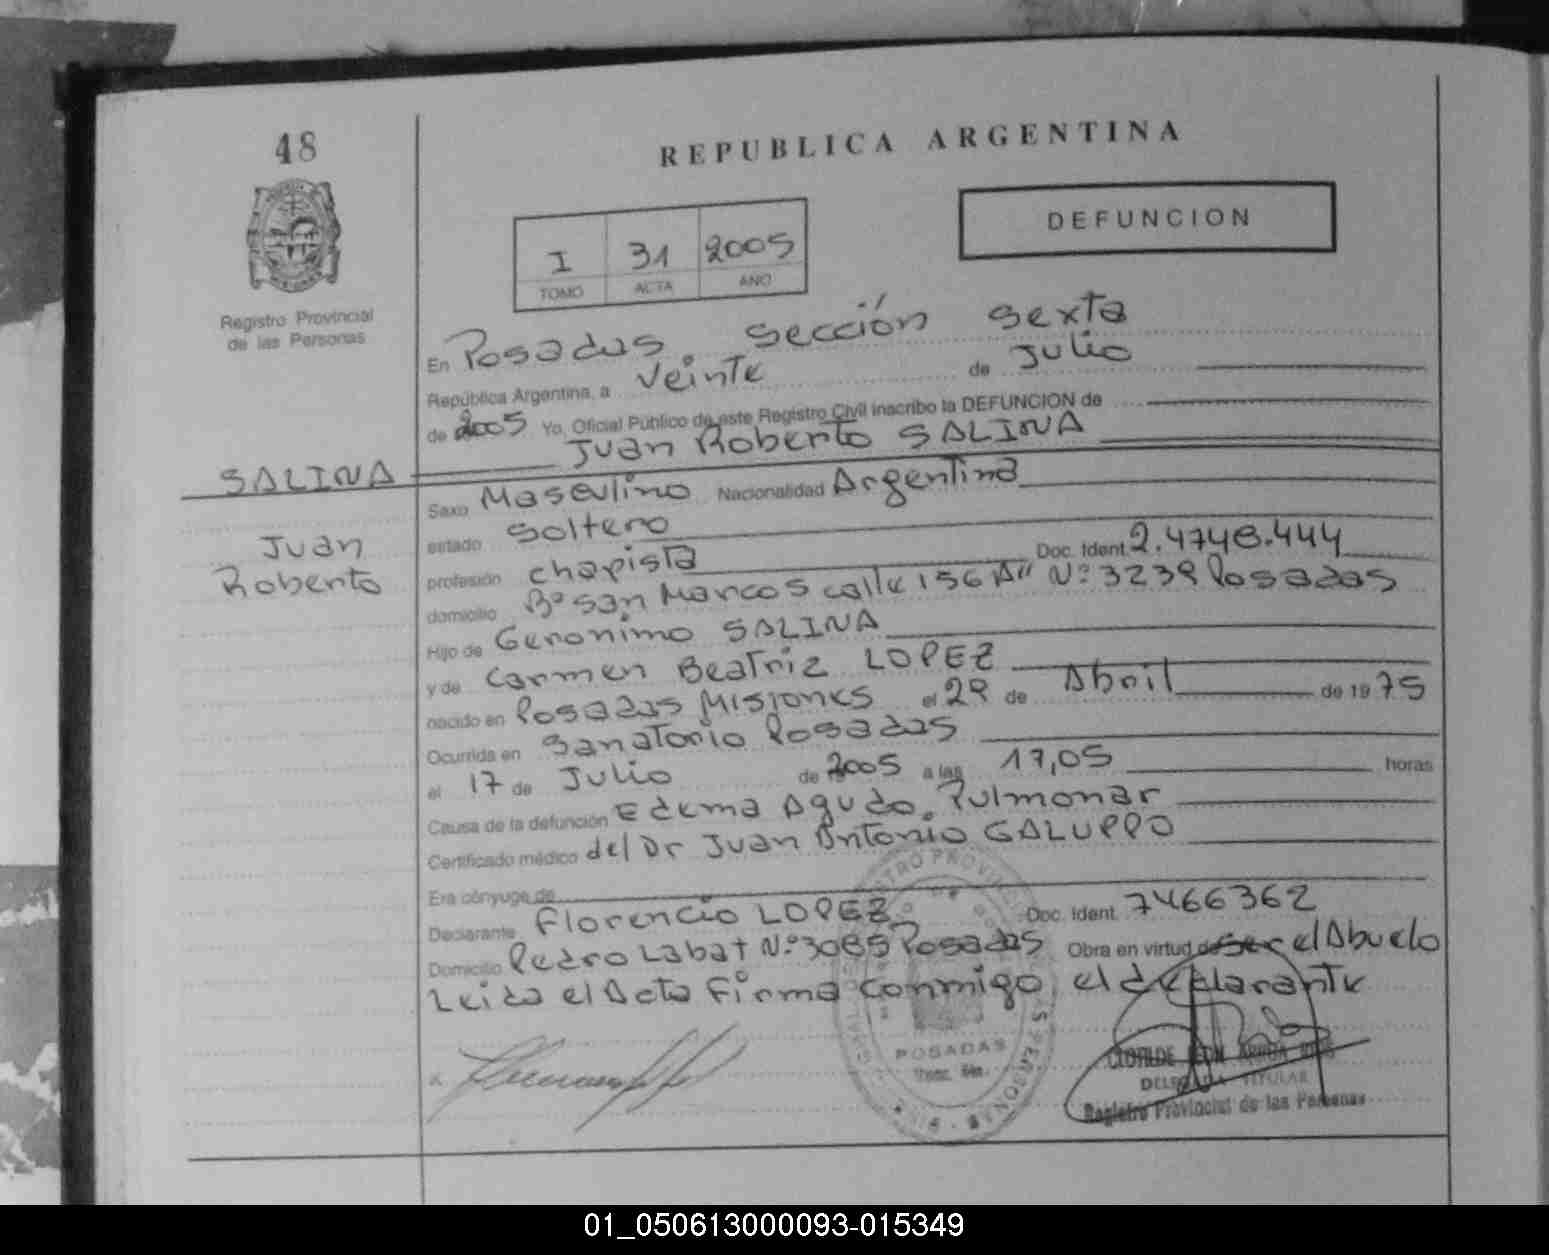 48
REPUBLICA ARGENTINA
DEFUNCION
I 31 2005
TOMO ACTA AÑO
Registro Provincial
de las Personas
En Posadas sección sexta
República Argentina, a veinte de Julio
de 2005 Yo, Oficial Público de este Registro Civil inscribo la DEFUNCION de
Juan Roberto SALINA
SALINA
Juan
Roberto
Sexo Masculino Nacionalidad Argentina
estado soltero
profesión chapista Doc. Ident. 2.4748.444
domicilio Bº San Marcos calle 156 Nº 3239 Posadas
Hijo de Geronimo SALINA
y de Carmen Beatriz LOPEZ
nacido en Posadas Misiones el 29 de Abril de 1975
Ocurrida en Sanatorio Posadas
el 17 de Julio de 2005 a las 17,05 horas
Causa de la defunción Edema Agudo Pulmonar
Certificado médico del Dr Juan Antonio GALUPPO
Era cónyuge de
Declarante Florencio LOPEZ Doc. Ident. 7466362
Domicilio Pedro Labat Nº 3085 Posadas Obra en virtud de ser el Abuelo
Leida el Acta Firma conmigo el declarante
POSADAS
CLOTILDE
DELEGADA TITULAR
Registro Provincial de las Personas
01_050613000093-015349